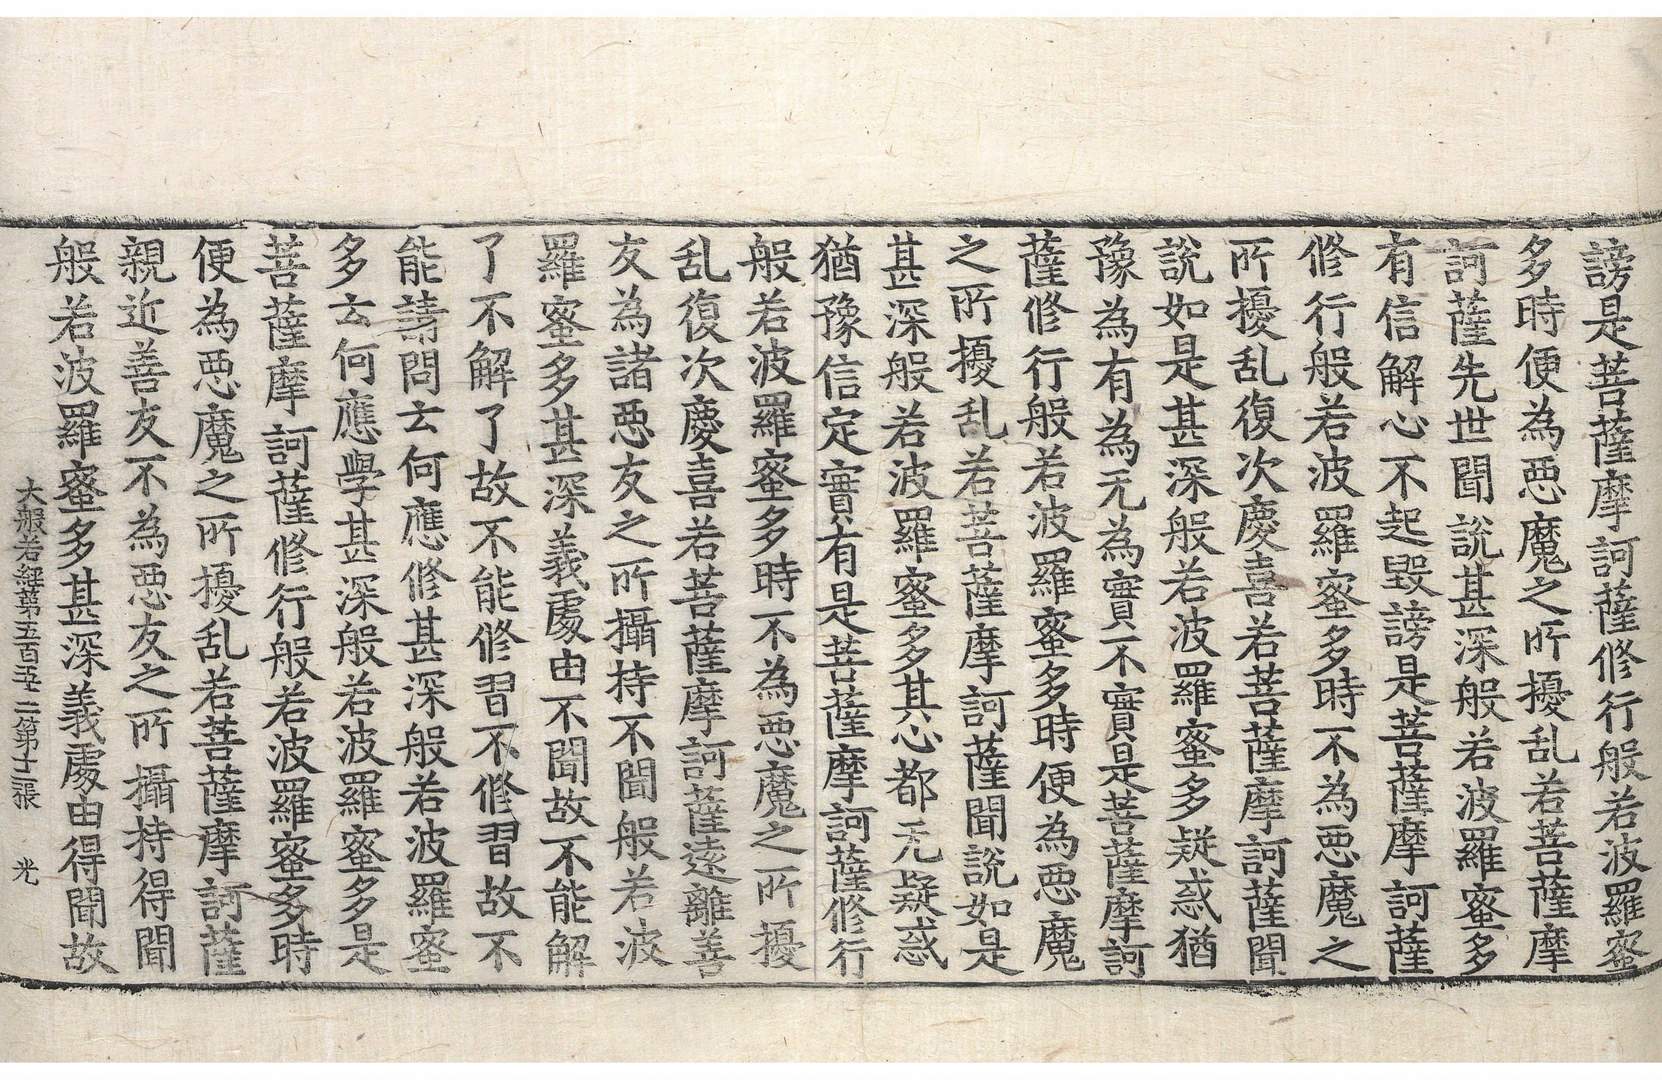 謗是菩薩摩訶薩修行般若波羅蜜
多時便為惡魔之所擾乱若菩薩摩
訶薩先世聞說甚深般若波羅蜜多
有信解心不起毀謗是菩薩摩訶薩
修行般若波羅蜜多時不為惡魔之
所擾乱復次慶喜若菩薩摩訶薩聞
說如是甚深般若波羅蜜多疑惑猶
豫為有為无為實不實是菩薩摩訶
薩修行般若波羅蜜多時便為惡魔
之所擾乱若菩薩摩訶薩聞說如是
甚深般若波羅蜜多其心都无疑惑
猶豫信定實有是菩薩摩訶薩修行
般若波羅蜜多時不為惡魔之所擾
乱復次慶喜若菩薩摩訶薩遠離善
友為諸惡友之所攝持不聞般若波
羅蜜多甚深義處由不聞故不能解
了不解了故不能修習不修習故不
能請問云何應修甚深般若波羅蜜
多云何應學甚深般若波羅蜜多是
菩薩摩訶薩修行般若波羅蜜多時
便為惡魔之所擾乱若菩薩摩訶薩
親近善友不為惡友之所攝持得聞
般若波羅蜜多甚深義處由得聞故
大般若經第五百五十二第十二張 光